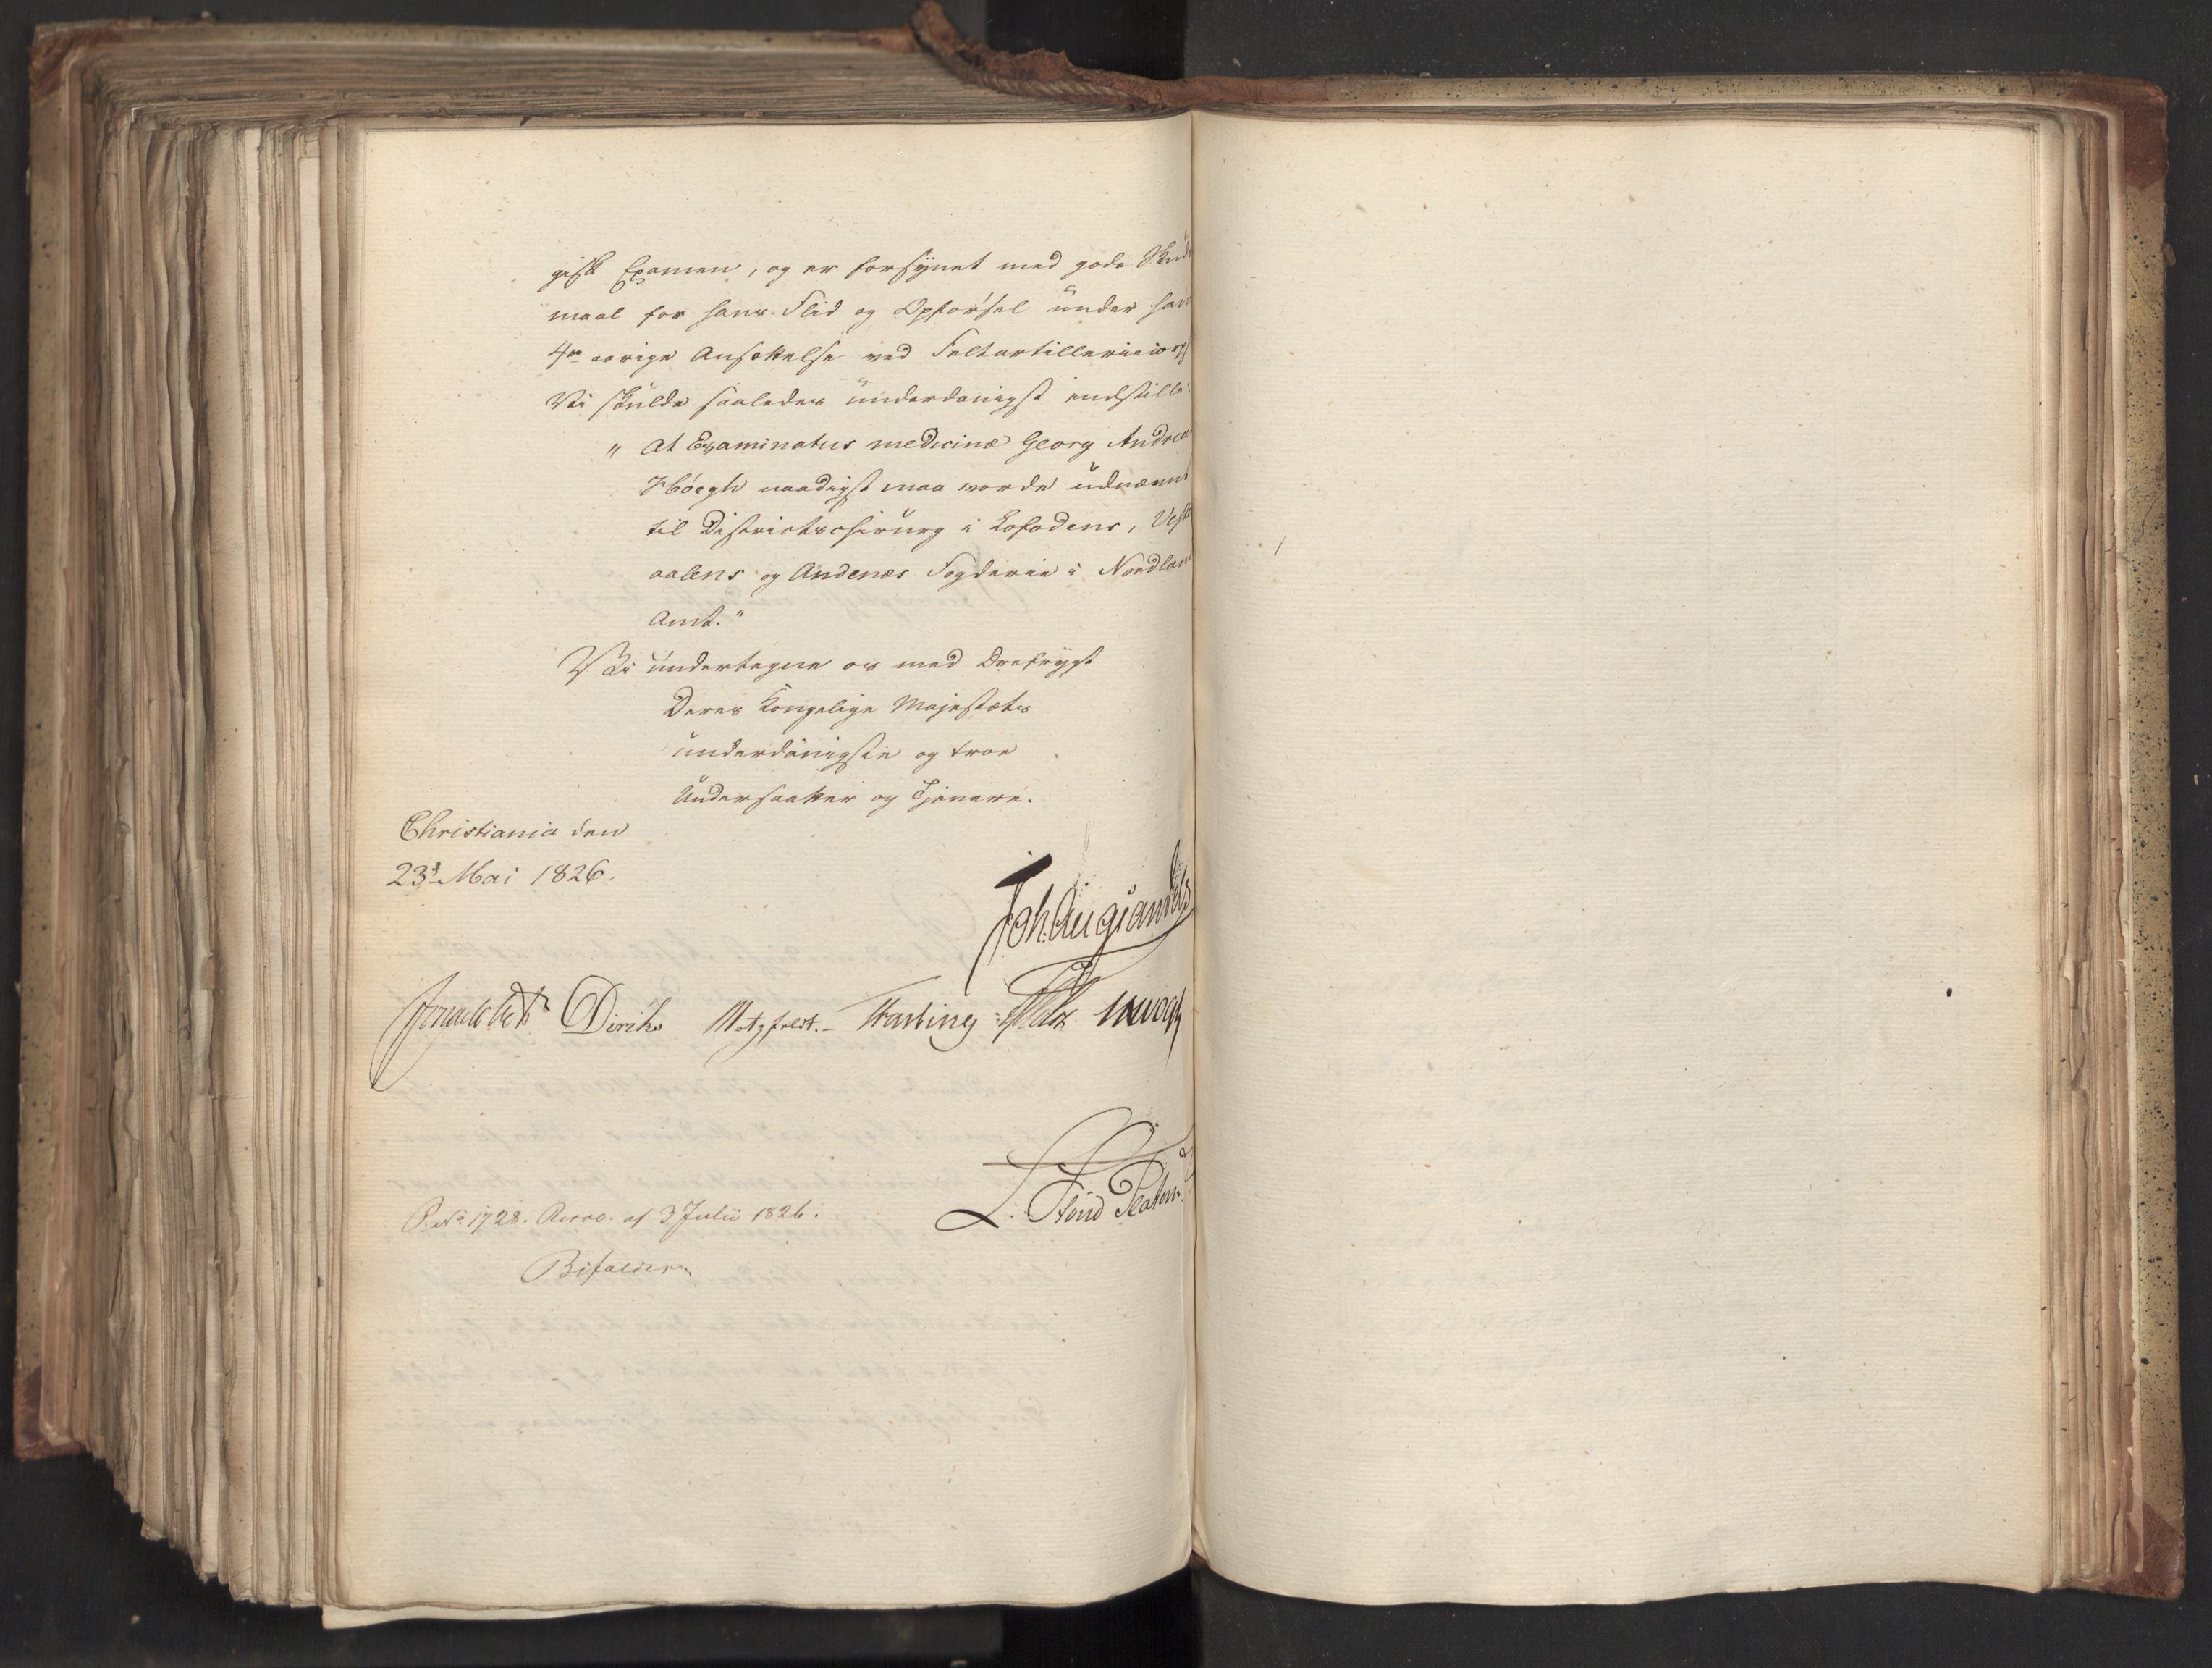 gisk Examen, og er forsynet med gode Skuds
maal for hans Flid og Opførsel under hans
4re aarige Ansættelse ved Feltartilleriecorps
Vi skulde saaledes underdanigst indstille:
"At Examinatus medicinæ Georg Andreas
Høegh naadigst maa vorde udnævnt
til Districtschirurg i Lofodens, Vest
aalens og Andenæs Fogderie i Nordland
Amt."
Vi undertegne os med Ærefrygt
Deres Kongelige Majestæts
underdanigste og troe
Undersaatter og Tjenere.
Christiania den
23d Mai 1826.
Joh. Aug. Sandels
Jonas Collett Diriks Motzfeldt. Krag
L. Stoud Platou
P. No. 1728. Resol. af 3 Julii 1826.
Bifaldes